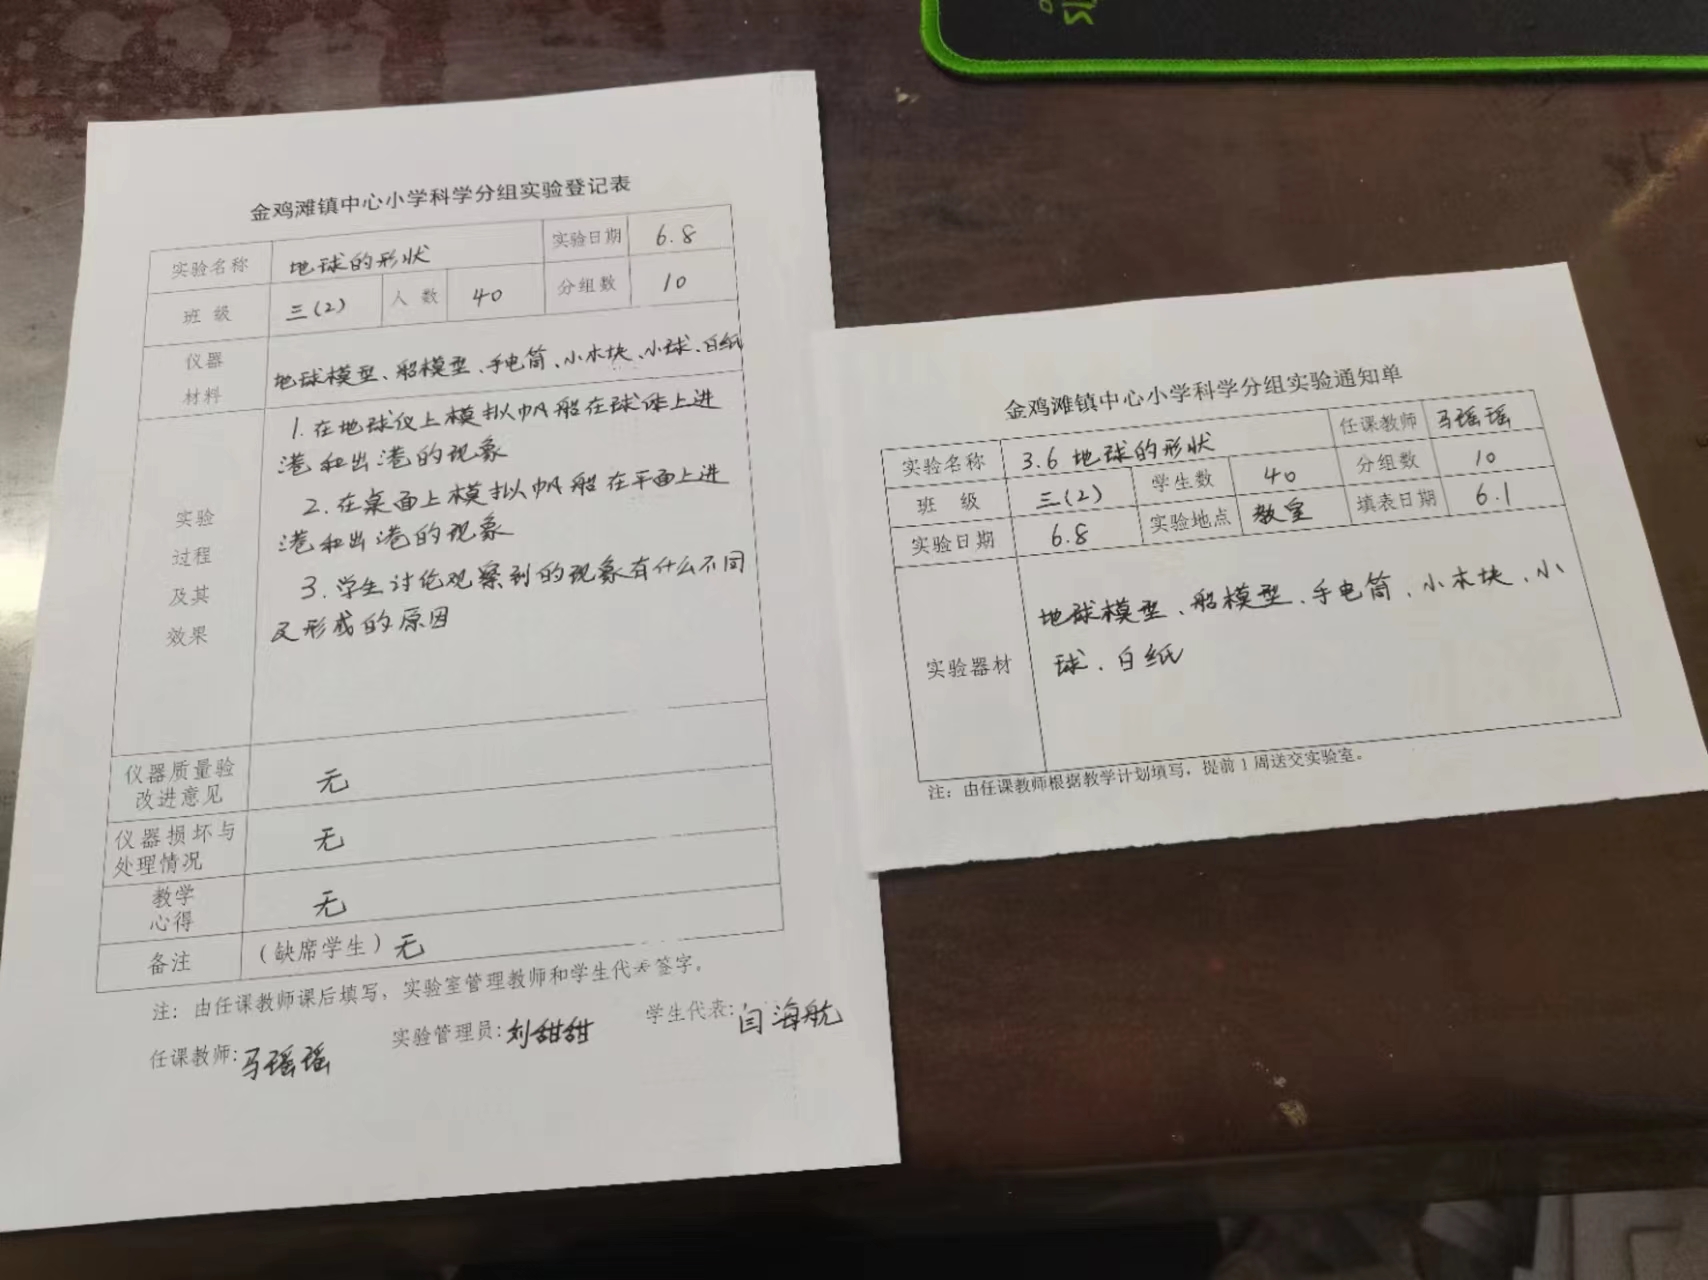 金鸡滩镇中心小学科学分组实验登记表
实验名称 地球的形状 实验日期 6.8
班 级 三(2) 人 数 40 分组数 10
仪器材料 地球模型、船模型、手电筒、小木块、小球、白纸
实验过程及其效果
1. 在地球仪上模拟帆船在球体上进
港和出港的现象
2. 在桌面上模拟帆船在平面上进
港和出港的现象
3. 学生讨论观察到的现象有什么不同
及形成的原因
仪器质量验改进意见 无
仪器损坏与处理情况 无
教学心得 无
备注 (缺席学生) 无
注：由任课教师课后填写，实验室管理教师和学生代表签字。
任课教师: 马瑶瑶 实验管理员: 刘甜甜 学生代表: 闫海航
金鸡滩镇中心小学科学分组实验通知单
实验名称 3.6 地球的形状 任课教师 马瑶瑶
班 级 三(2) 学生数 40 分组数 10
实验日期 6.8 实验地点 教室 填表日期 6.1
实验器材 地球模型、船模型、手电筒、小木块、小
球、白纸
注：由任课教师根据教学计划填写，提前1周送交实验室。